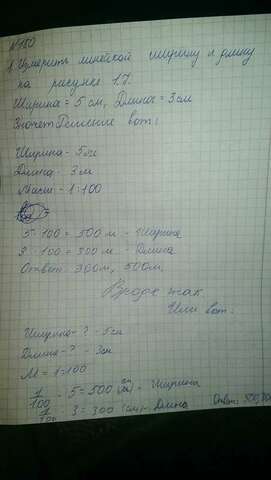 №150
1. Измерить линейкой ширину и длину
на рисунке 1.7.
Ширина = 5 см, Длина = 3 см
Значет Решение вот:
Ширина - 5см
Длина - 3см
Масш - 1:100
5·100 = 500 м - Ширина
3·100 = 300 м - Длина
Ответ: 300м, 500м.
Вроде так
Или вот:
Ширина - ? - 5см
Длина - ? - 3см
М = 1:100
1/100 · 5 = 500 - Ширина
3 = 300 (см) - Длина
Ответ: